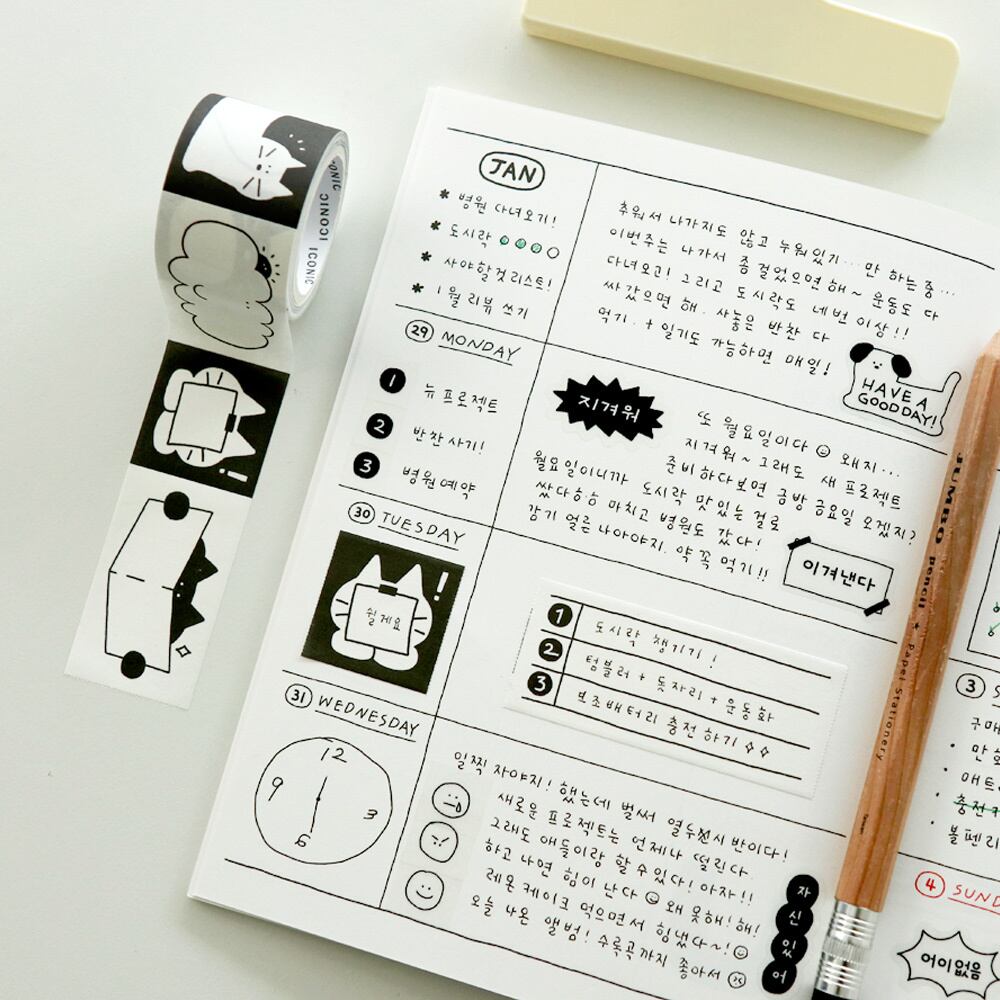 JAN
* 병원 다녀오기!
* 도시락
* 사야할것리스트!
* 1월 리뷰 쓰기
추워서 나가지도 않고 누워있기... 만 하는 중...
이번주는 나가서 좀 걸었으면 해~ 운동도 다
다녀오고! 그리고 도시락도 네번 이상!!
싸갔으면 해. 사놓은 반찬 다
먹기. + 일기도 가능하면 매일!
HAVE A
GOOD DAY!
29 MONDAY
1 뉴프로젝트
2 반찬사기!
3 병원예약
지겨워
또 월요일이다 왜지...
지겨워~ 그래도 새 프로젝트
준비하다보면 금방 금요일 오겠지?
월요일이니까 도시락 맛있는 걸로
쌌다ㅎㅎ 마치고 병원도 갔다!
감기 얼른 나아야지. 약 꼭 먹기!!
이겨낸다
30 TUESDAY
!
쉴게요
1 도시락 챙기기!
2 텀블러 + 돗자리 + 운동화
3 보조배터리 충전하기
31 WEDNESDAY
12
9
3
6
일찍 자야지! 했는데 벌써 열두시 반이다!
새로운 프로젝트는 언제나 떨린다.
그래도 애들이랑 할 수 있다! 아자!!
하고 나면 힘이 난다 왜 못해! 해!
레몬 케이크 먹으면서 힘냈다~!
오늘 나온 앨범! 수록곡까지 좋아서
자
신
있
어
ICONIC ICONIC
!
JUMBO pencil + Papel Stationery
3
구매
• 만
• 매트
• 충전
• 볼펜
4 SUND
어이없음